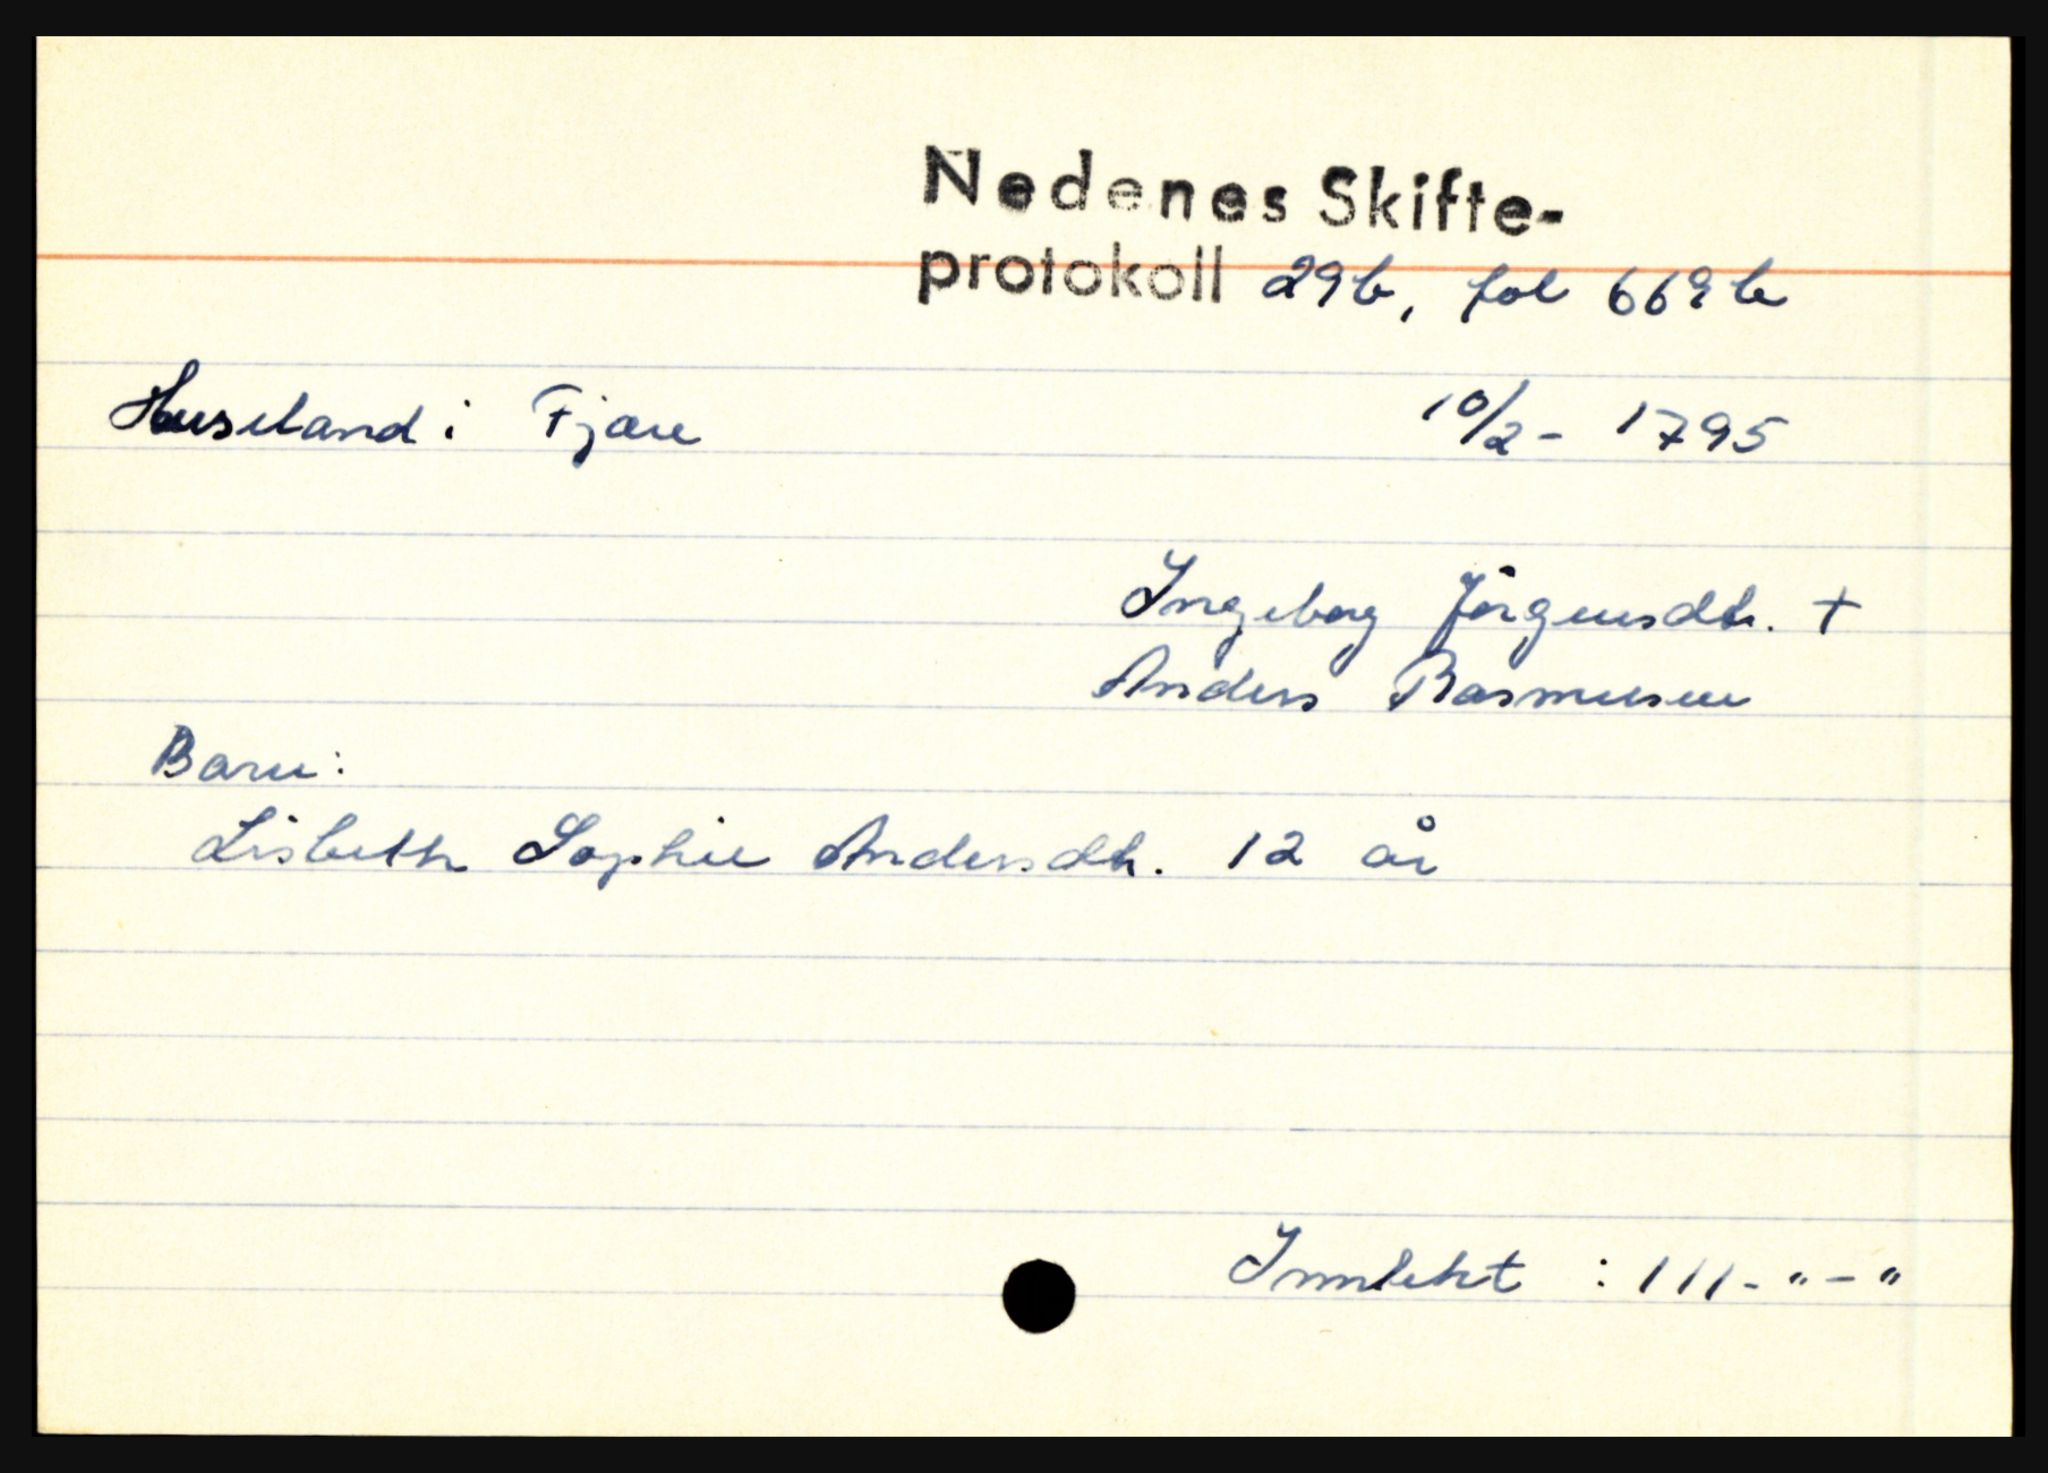 Nedenes Skifte-
protokoll 29b, fol 669b
Huseland i Fjære 10/2 - 1795
Ingeborg Jörgensdtr. +
Anders Rasmusen
Barn:
Lisbeth Sophie Andersdtr. 12 år
Inntekt : 111-"-"